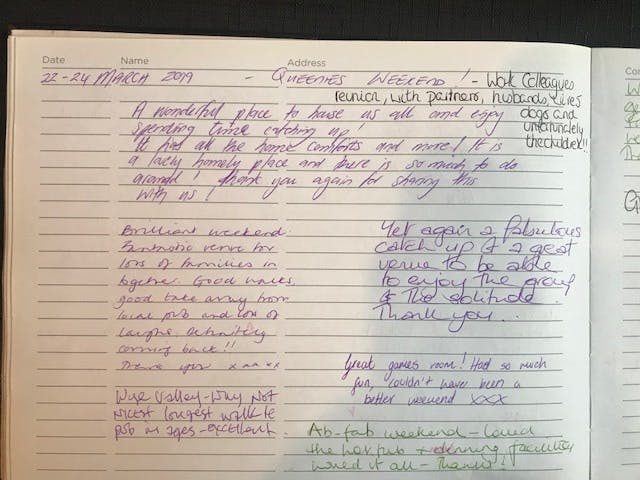 Date Name Address
22-24 MARCH 2019 - QUEENIES WEEKEND! - Work Colleagues
reunion, with partners, husbands, wives
dogs and
unfortunately
the children!!
A wonderful place to house us all and enjoy
spending time catching up!
It had all the home comforts and more! It is
a lovely homely place and there is so much to do
around! Thank you again for sharing this
with us!
Brilliant weekend.
Fantastic venue for
lots of families in
together. Good walks,
good take away from
local pub and lots of
laughs. Definitely
coming back!!
Thank you x x x x
Yet again a fabulous
catch up & a great
venue to be able
to enjoy the group
& the solitude.
Thank you...
Great games room! Had so much
fun, couldn't have been a
better weekend xxx
Wye Valley - Why Not
Nicest longest walk to
pub in ages - excellent.
Ab-fab weekend - loved
the hot tub + dinning facilities
loved it all - Thanks!
Co
G